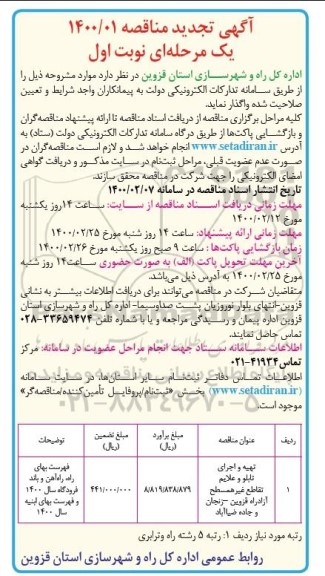 آگهی تجدید مناقصه ۱۴۰۰/۰۱
یک مرحله‌ای نوبت اول
اداره کل راه و شهرسازی استان قزوین در نظر دارد موارد مشروحه ذیل را
از طریق سامانه تدارکات الکترونیکی دولت به پیمانکاران واجد شرایط و تعیین
صلاحیت شده واگذار نماید.
کلیه مراحل برگزاری مناقصه از دریافت اسناد مناقصه تا ارائه پیشنهاد مناقصه‌گران
و بازگشایی پاکت‌ها از طریق درگاه سامانه تدارکات الکترونیکی دولت (ستاد) به
آدرس www.setadiran.ir انجام خواهد شد و لازم است مناقصه‌گران در
صورت عدم عضویت قبلی، مراحل ثبت‌نام در سایت مذکور و دریافت گواهی
امضای الکترونیکی را جهت شرکت در مناقصه محقق سازند.
تاریخ انتشار اسناد مناقصه در سامانه ۱۴۰۰/۰۲/۰۷
مهلت زمانی دریافت اسناد مناقصه از سایت: ساعت ۱۴ روز یکشنبه
مورخ ۱۴۰۰/۰۲/۱۲
مهلت زمانی ارائه پیشنهاد: ساعت ۱۴ روز شنبه مورخ ۱۴۰۰/۰۲/۲۵
زمان بازگشایی پاکت‌ها: ساعت ۹ صبح روز یکشنبه مورخ ۱۴۰۰/۰۲/۲۶
آخرین مهلت تحویل پاکت (الف) به صورت حضوری ساعت ۱۴ روز شنبه
مورخ ۱۴۰۰/۰۲/۲۵ به آدرس ذیل می‌باشد.
متقاضیان شرکت در مناقصه می‌توانند برای دریافت اطلاعات بیشتر به نشانی
قزوین-انتهای بلوار نوروزیان پشت صداوسیما- اداره کل راه و شهرسازی استان
قزوین اداره پیمان و رسیدگی مراجعه و یا با شماره تلفن ۳۳۶۵۹۴۷۴-۰۲۸
تماس حاصل نمایند.
اطلاعات سامانه ستاد جهت انجام مراحل عضویت در سامانه: مرکز
تماس ۴۱۹۳۴-۰۲۱
اطلاعات تماس دفاتر ثبت‌نام سایر استان‌ها، در سایت سامانه
(www.setadiran.ir) بخش «ثبت‌نام/پروفایل تأمین‌کننده/مناقصه‌گر»
موجود است.
ردیف عنوان مناقصه مبلغ برآورد (ریال) مبلغ تضمین (ریال) توضیحات
۱ تهیه و اجرای تابلو و علایم تقاطع غیرهمسطح آزادراه قزوین -زنجان و جاده ضیاآباد ۸/۸۱۹/۸۳۸/۸۷۹ ۴۴۱/۰۰۰/۰۰۰ فهرست بهای راه، راه‌آهن و باند فرودگاه سال ۱۴۰۰ و فهرست بهای ابنیه سال ۱۴۰۰
رتبه مورد نیاز ردیف ۱: رتبه ۵ رشته راه وترابری
روابط عمومی اداره کل راه و شهرسازی استان قزوین
۰۲۱-۸۸۳۴۹۶۷۰-۵